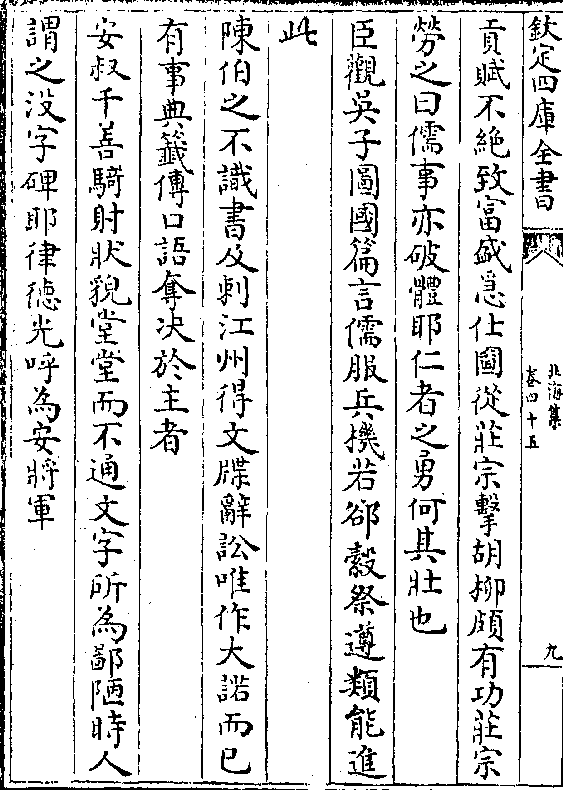 欽定四庫全書
北海集
卷四十五
九
貢賦不絶致富盛憑仕國從莊宗擊胡柳頗有功莊宗
勞之曰儒事亦破體耶仁者之勇何其壯也
臣觀吳子圖國篇言儒服兵機若郤縠祭遵類能進
此
陳伯之不識書及刺江州得文牒辭訟唯作大諾而已
有事典籖傳口語奪决於主者
安叔千善騎射狀貌堂堂而不通文字所為鄙陋時人
謂之没字碑耶律徳光呼為安將軍